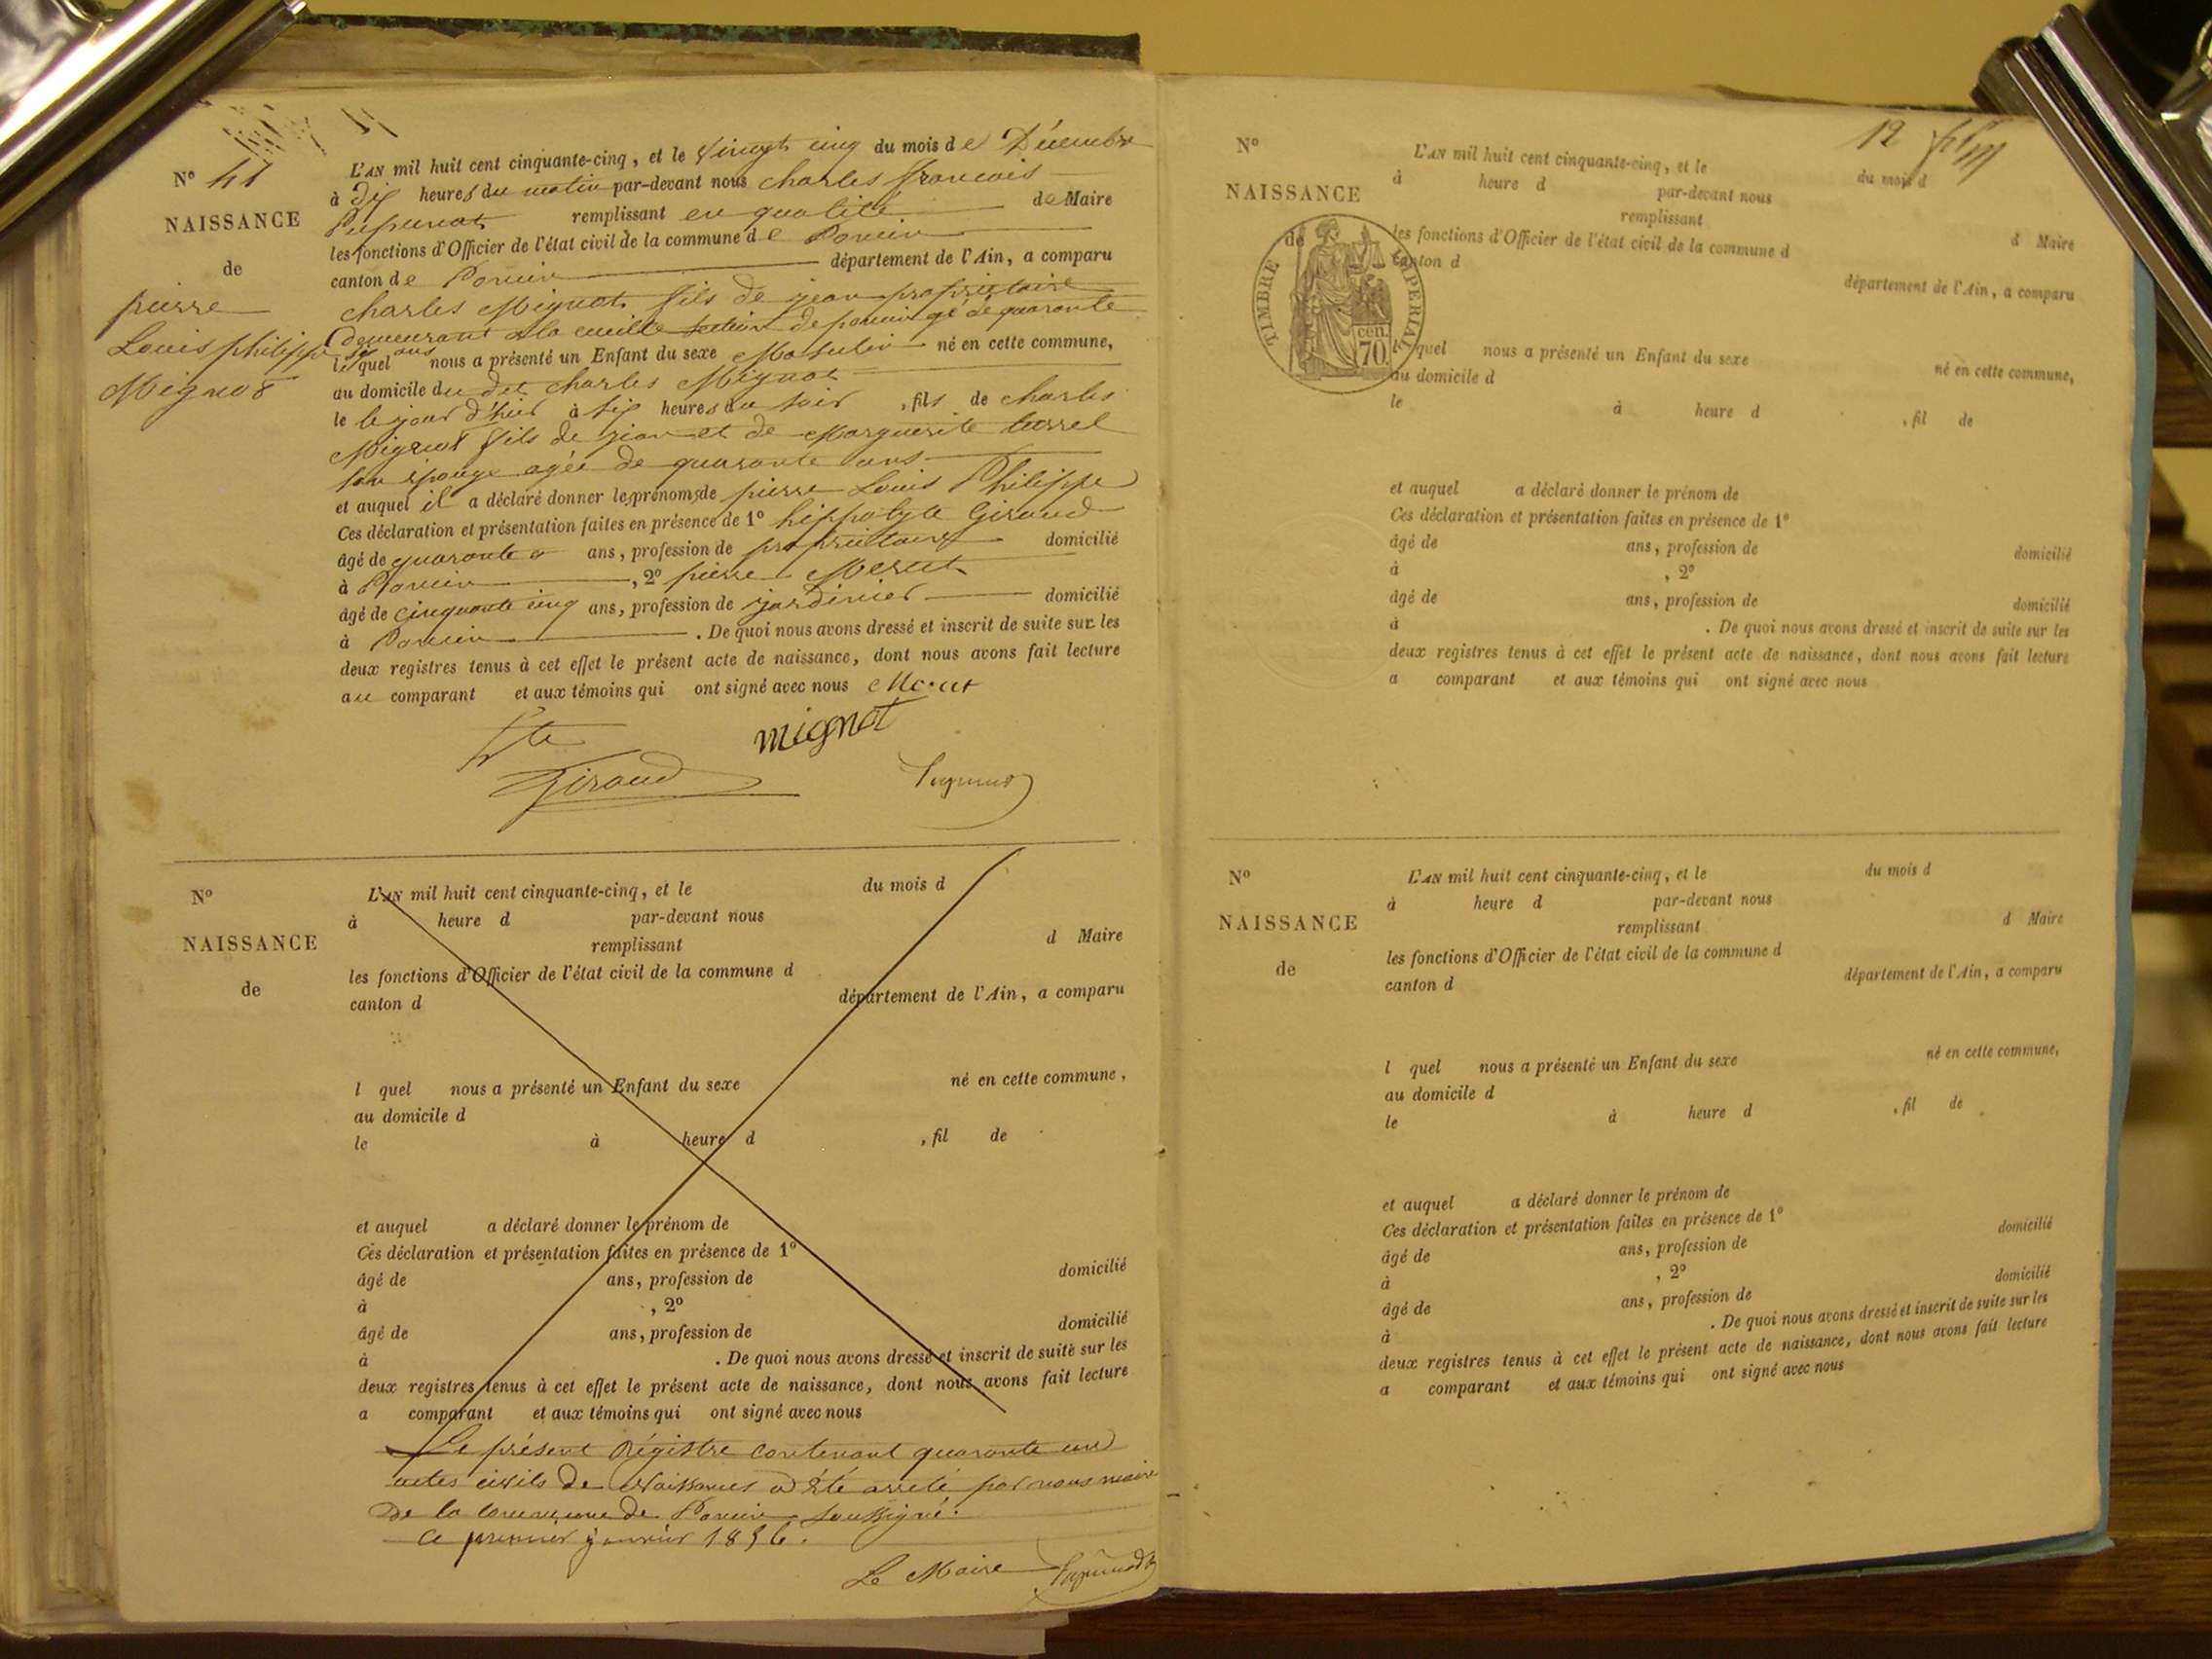 N° 41
NAISSANCE
de
pierre
Louis philippe
Mignot
L'AN mil huit cent cinquante-cinq, et le vingt cinq du mois de Décembre
à dix heures du matin par-devant nous charles francois
remplissant en qualité de Maire
les fonctions d'Officier de l'état civil de la commune de Poncin
canton de Poncin département de l'Ain, a comparu
charles Mignot fils de jean propriétaire
Demeurant a la cueille section de poncin agé de quarante
six ans lequel nous a présenté un Enfant du sexe Masculin né en cette commune,
au domicile du dit charles Mignot
le le jour d'hier à six heures du soir , fils de charles
Mignot fils de jean et de Marguerite
son épouse agée de quarante ans
et auquel il a déclaré donner les prénoms de pierre Louis Philippe
Ces déclaration et présentation faites en présence de 1° hippolyte Giraud
âgé de quarante ans, profession de propriétaire domicilié
à Poncin , 2° pierre
âgé de cinquante cinq ans, profession de jardinier domicilié
à Poncin . De quoi nous avons dressé et inscrit de suite sur les
deux registres tenus à cet effet le présent acte de naissance, dont nous avons fait lecture
au comparant et aux témoins qui ont signé avec nous
mignot
Hte
Giraud
N°
NAISSANCE
de
L'AN mil huit cent cinquante-cinq, et le du mois d
à heure d par-devant nous
remplissant d Maire
les fonctions d'Officier de l'état civil de la commune d
canton d département de l'Ain, a comparu
l quel nous a présenté un Enfant du sexe né en cette commune,
au domicile d
le à heure d , fil de
et auquel a déclaré donner le prénom de
Ces déclaration et présentation faites en présence de 1°
âgé de ans, profession de domicilié
à , 2°
âgé de ans, profession de domicilié
à . De quoi nous avons dressé et inscrit de suite sur les
deux registres tenus à cet effet le présent acte de naissance, dont nous avons fait lecture
a comparant et aux témoins qui ont signé avec nous
Le présent Régistre contenant quarante un
actes civils de Naissances a été arrêté par nous maire
De la commune de Poncin soussigné.
ce premier janvier 1856.
Le Maire
12
N°
NAISSANCE
de
TIMBRE IMPERIAL
70 cen.
L'AN mil huit cent cinquante-cinq, et le du mois d
à heure d par-devant nous
remplissant d Maire
les fonctions d'Officier de l'état civil de la commune d
canton d département de l'Ain, a comparu
l quel nous a présenté un Enfant du sexe né en cette commune,
au domicile d
le à heure d , fil de
et auquel a déclaré donner le prénom de
Ces déclaration et présentation faites en présence de 1°
âgé de ans, profession de domicilié
à , 2°
âgé de ans, profession de domicilié
à . De quoi nous avons dressé et inscrit de suite sur les
deux registres tenus à cet effet le présent acte de naissance, dont nous avons fait lecture
a comparant et aux témoins qui ont signé avec nous
N°
NAISSANCE
de
L'AN mil huit cent cinquante-cinq, et le du mois d
à heure d par-devant nous
remplissant d Maire
les fonctions d'Officier de l'état civil de la commune d
canton d département de l'Ain, a comparu
l quel nous a présenté un Enfant du sexe né en cette commune,
au domicile d
le à heure d , fil de
et auquel a déclaré donner le prénom de
Ces déclaration et présentation faites en présence de 1°
âgé de ans, profession de domicilié
à , 2°
âgé de ans, profession de domicilié
à . De quoi nous avons dressé et inscrit de suite sur les
deux registres tenus à cet effet le présent acte de naissance, dont nous avons fait lecture
a comparant et aux témoins qui ont signé avec nous